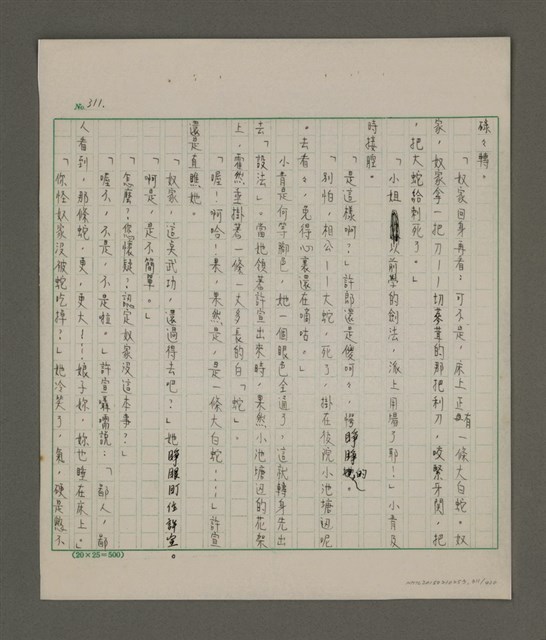 No. 311.
碌々轉。
「奴家回身再看：可不是，床上正有一條大白蛇。奴
家，奴家拿一把刀——切菜的那把利刀，咬緊牙關，把
，把大蛇給刺死了。」
「小姐以前學的劍法，派上用場了耶！」小青及
時接腔。
「是這樣啊？」許郎還是傻呵々，愕睜睜的。
「別怕，相公——大蛇，死了，掛在後院小池塘邊呢
。去看々，免得心裏還在嘀咕。」
小青是何等腳色，她一個眼色全通了，這就轉身先出
去「設法」。當她領著許宣出來時，果然小池塘邊的花架
上，霍然垂掛著一條一丈多長的白「蛇」。
「喔！啊哈！果，果然是，是一條大白蛇...」許宣
還是直瞧她。
「奴家，這吳武功，還過得去吧？」她睜眼盯住許宣。
「啊是，是不簡單。」
「怎麼？你懷疑？認定奴家沒這本事？」
「喔不，不是，不是啦。」許宣囁嚅說：「鄙人，鄙
人看到，那條蛇，更，更大——娘子妳，妳也睡在床上。」
「你怪奴家沒被蛇吃掉？」她冷笑了，氣，硬是憋不
(20×25=500)